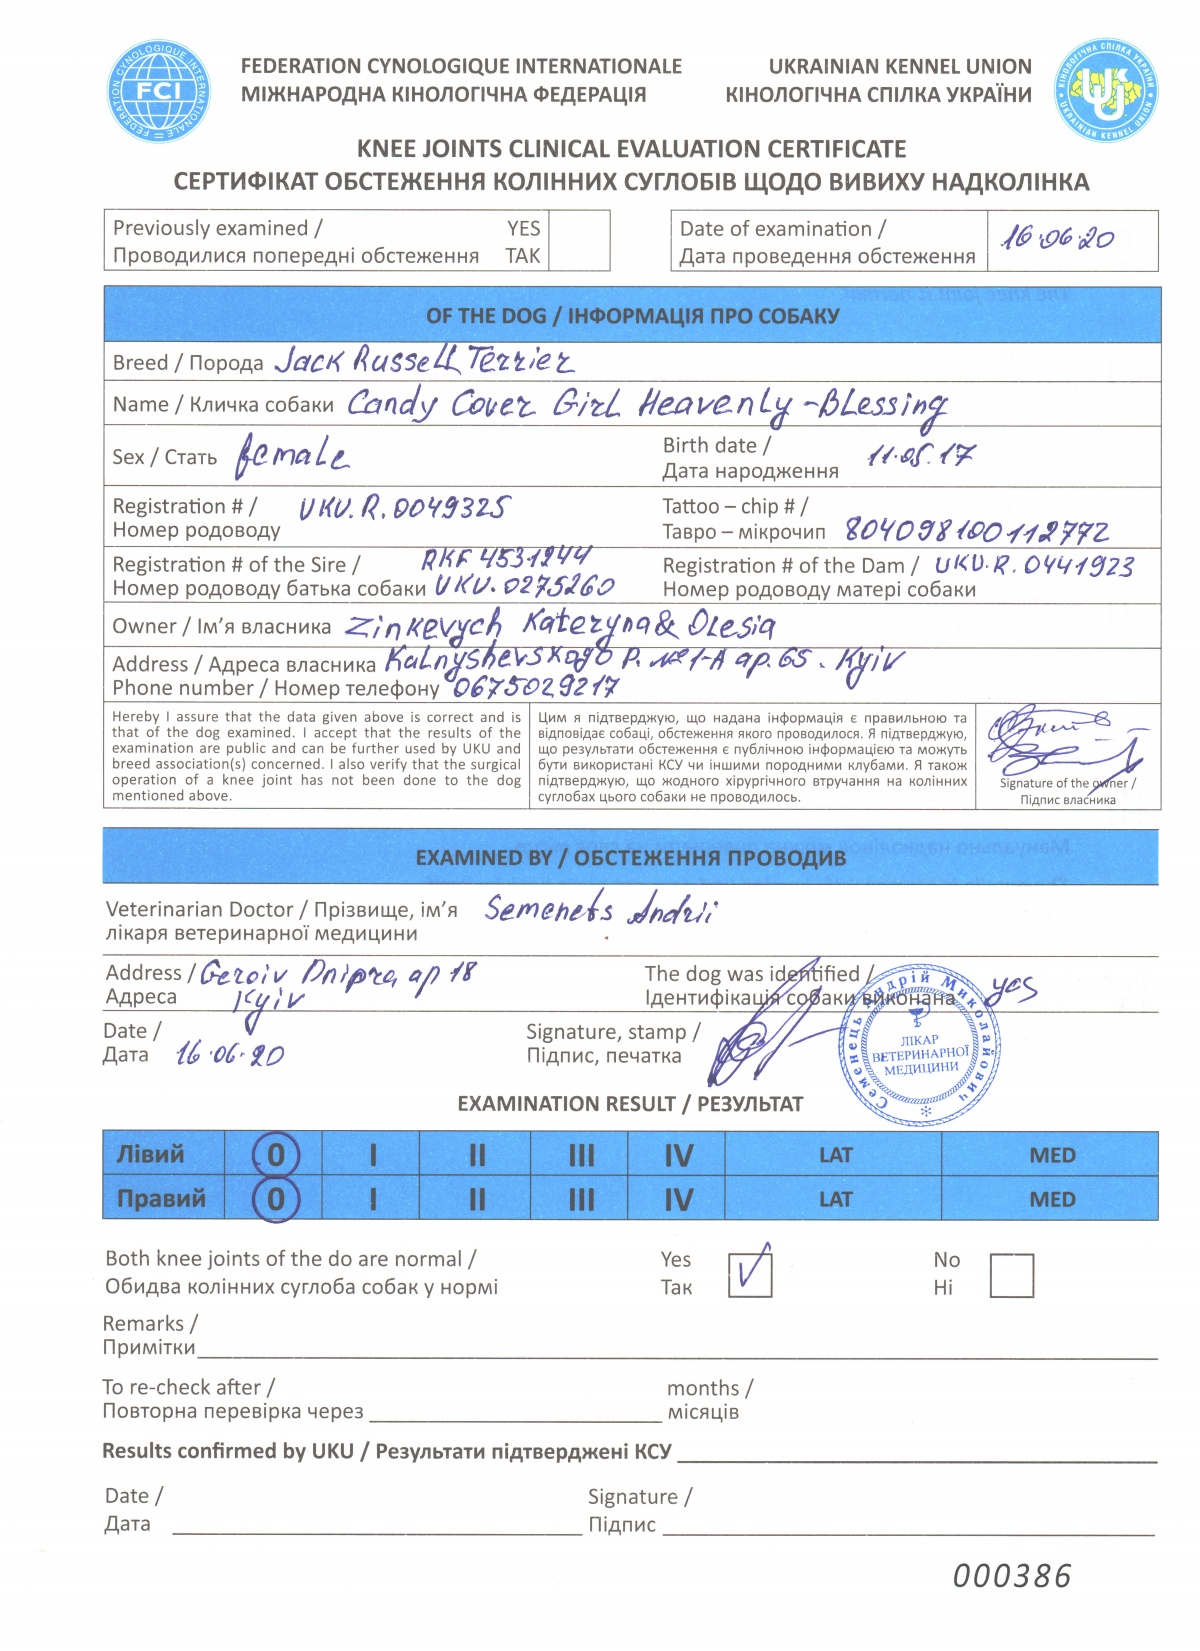 FEDERATION CYNOLOGIQUE INTERNATIONALE
FCI
FEDERATION CYNOLOGIQUE INTERNATIONALE
МІЖНАРОДНА КІНОЛОГІЧНА ФЕДЕРАЦІЯ
UKRAINIAN KENNEL UNION
КІНОЛОГІЧНА СПІЛКА УКРАЇНИ
КІНОЛОГІЧНА СПІЛКА УКРАЇНИ
UKU
UKRAINIAN KENNEL UNION
KNEE JOINTS CLINICAL EVALUATION CERTIFICATE
СЕРТИФІКАТ ОБСТЕЖЕННЯ КОЛІННИХ СУГЛОБІВ ЩОДО ВИВИХУ НАДКОЛІНКА
Previously examined / YES
Проводилися попередні обстеження ТАК
Date of examination / 16.06.20
Дата проведення обстеження
OF THE DOG / ІНФОРМАЦІЯ ПРО СОБАКУ
Breed / Порода Jack Russell Terrier
Name / Кличка собаки Candy Cover Girl Heavenly-Blessing
Sex / Стать female
Birth date / 11.05.17
Дата народження
Registration # / UKU.R.0049325
Номер родоводу
Tattoo – chip # /
Тавро – мікрочип 804098100112772
Registration # of the Sire / RKF 4531244
Номер родоводу батька собаки UKU.0275260
Registration # of the Dam / UKU.R.0441923
Номер родоводу матері собаки
Owner / Ім’я власника Zinkevych Kateryna & Olesia
Address / Адреса власника Kalnyshevskogo P. №1-A ap.65. Kyiv
Phone number / Номер телефону 0675029217
Hereby I assure that the data given above is correct and is
that of the dog examined. I accept that the results of the
examination are public and can be further used by UKU and
breed association(s) concerned. I also verify that the surgical
operation of a knee joint has not been done to the dog
mentioned above.
Цим я підтверджую, що надана інформація є правильною та
відповідає собаці, обстеження якого проводилося. Я підтверджую,
що результати обстеження є публічною інформацією та можуть
бути використані КСУ чи іншими породними клубами. Я також
підтверджую, що жодного хірургічного втручання на колінних
суглобах цього собаки не проводилось.
Signature of the owner /
Підпис власника
EXAMINED BY / ОБСТЕЖЕННЯ ПРОВОДИВ
Veterinarian Doctor / Прізвище, ім’я Semenets Andrii
лікаря ветеринарної медицини
Address / Geroiv Dnipra ap 18
Адреса Kyiv
The dog was identified / yes
Ідентифікація собаки виконана
Date /
Дата 16.06.20
Signature, stamp /
Підпис, печатка
Семенець Андрій Миколайович
ЛІКАР
ВЕТЕРИНАРНОЇ
МЕДИЦИНИ
EXAMINATION RESULT / РЕЗУЛЬТАТ
Лівий 0 I II III IV LAT MED
Правий 0 I II III IV LAT MED
Both knee joints of the do are normal / Yes No
Обидва колінних суглоба собак у нормі Так Ні
Remarks /
Примітки
To re-check after / months /
Повторна перевірка через місяців
Results confirmed by UKU / Результати підтверджені КСУ
Date / Signature /
Дата Підпис
000386